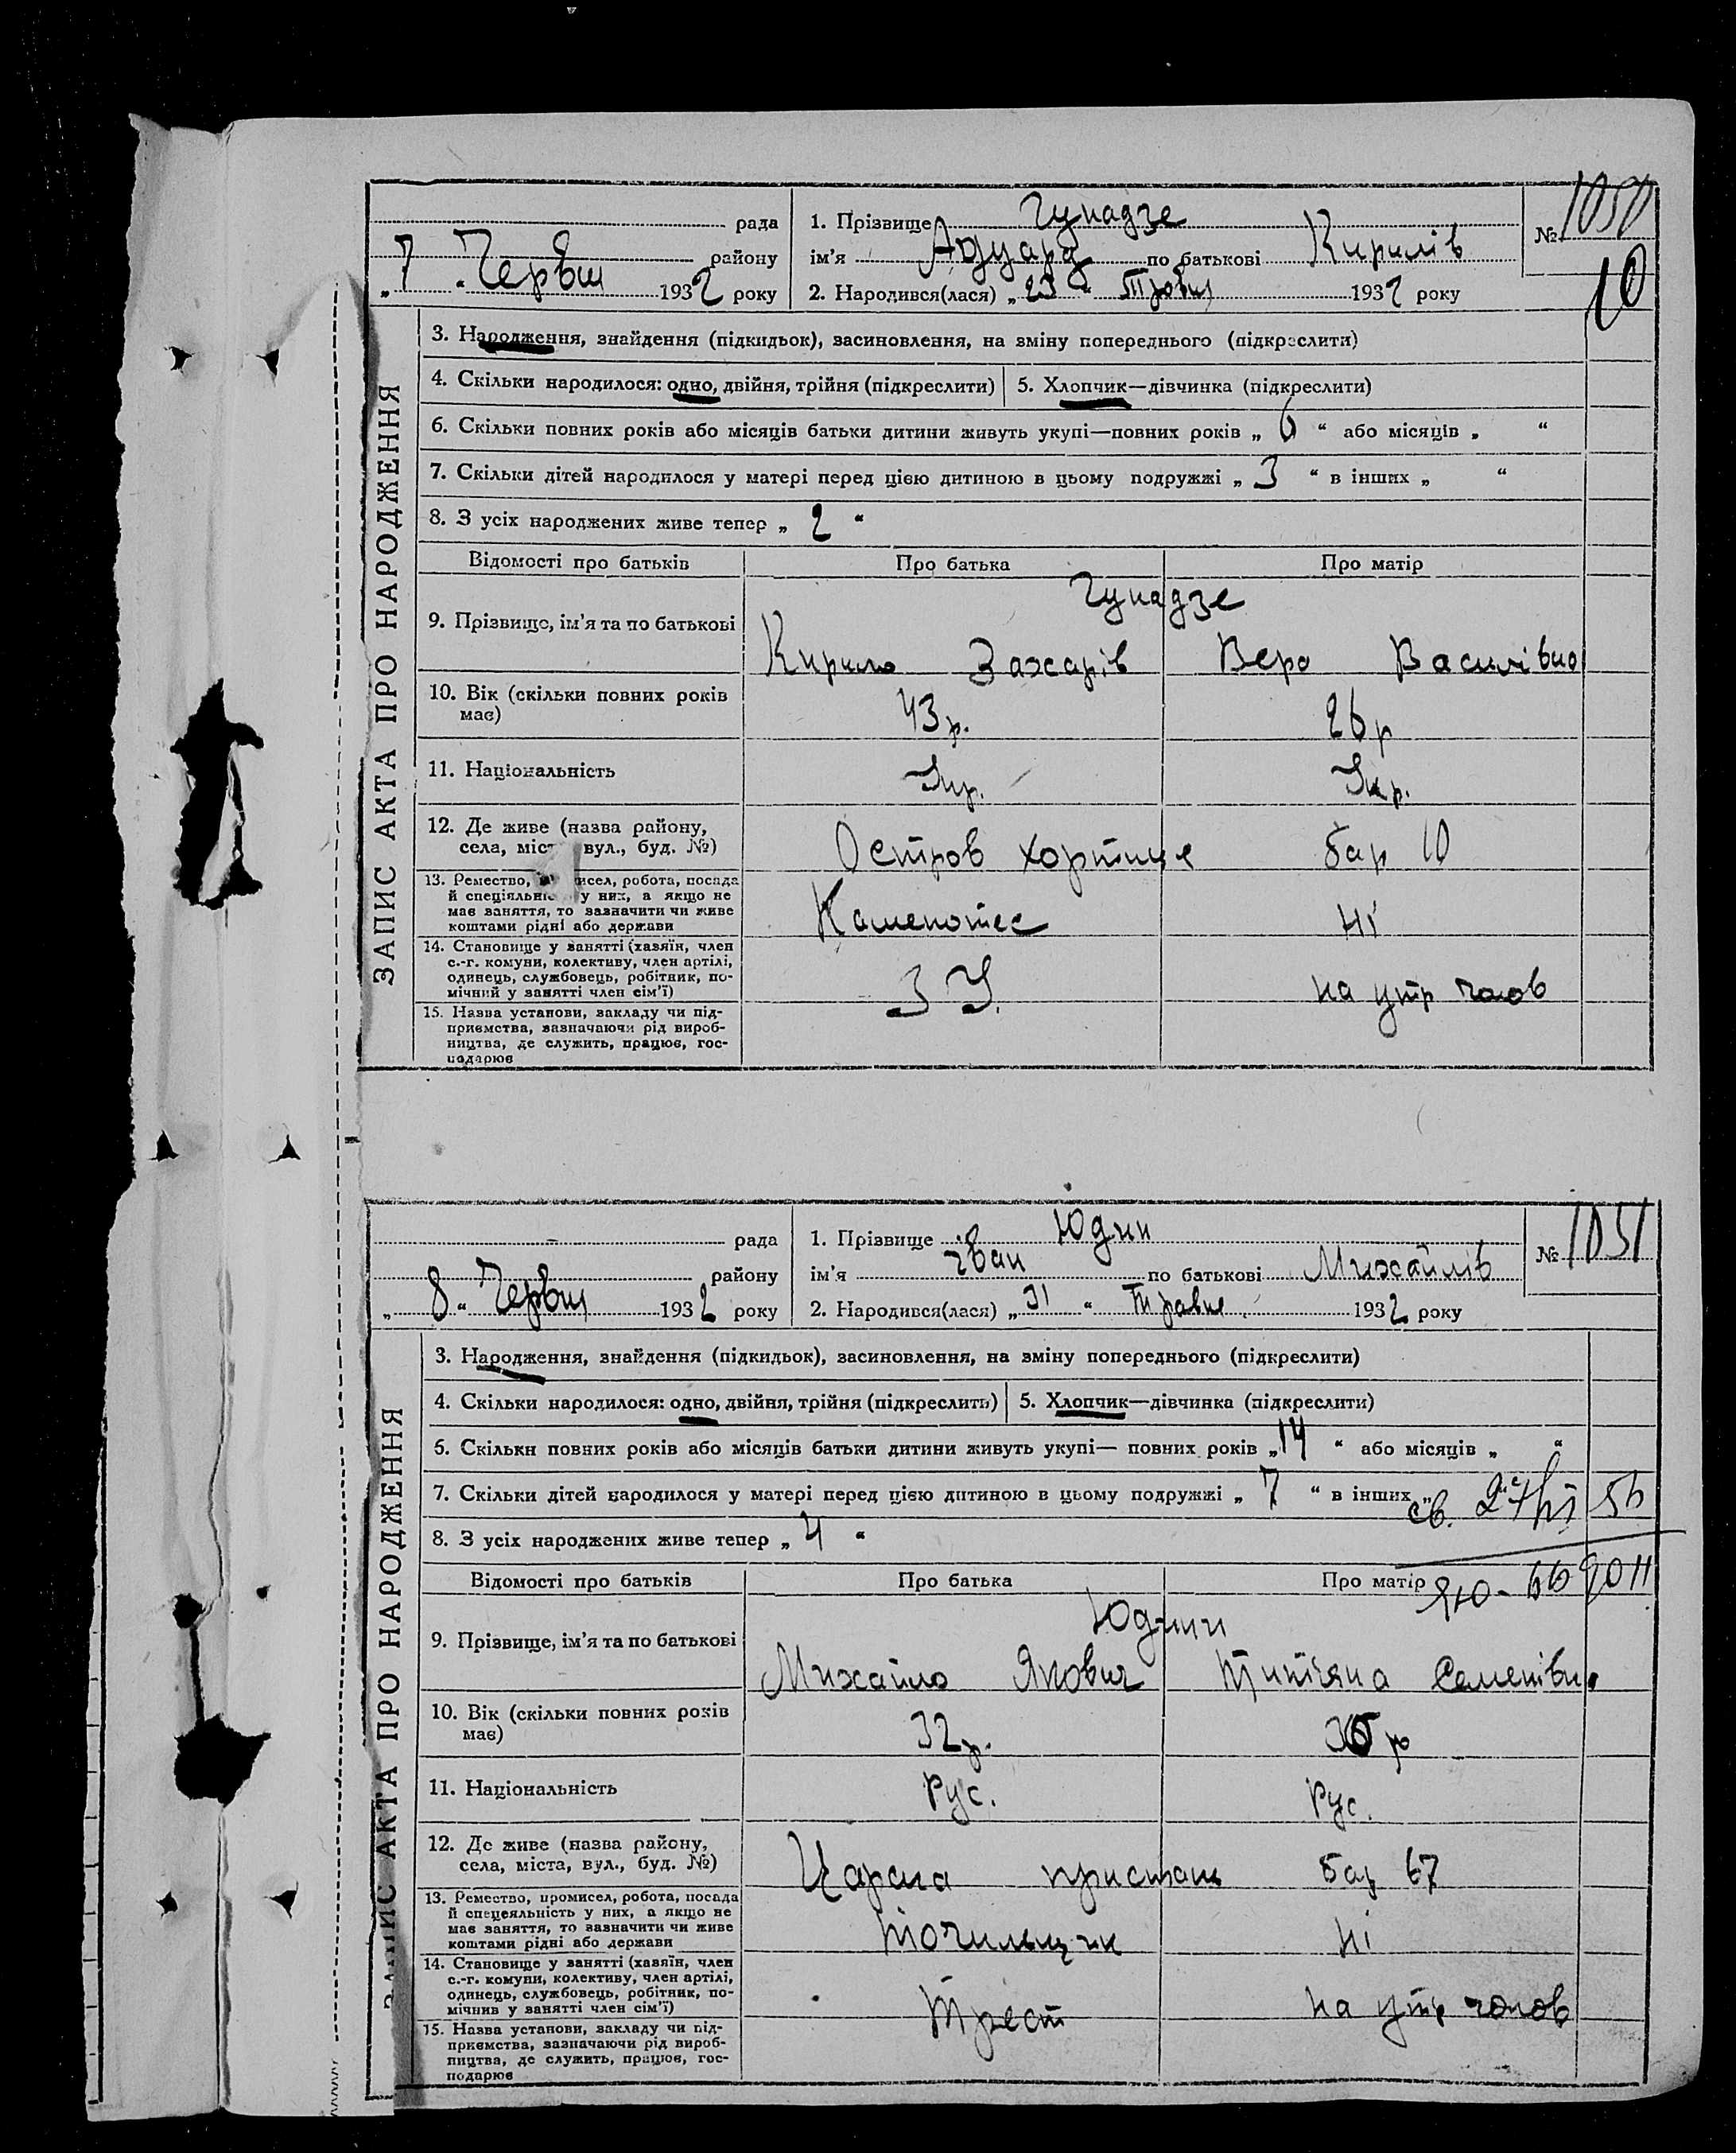 1050
10
рада
району
„ 7 “ Червня 1932 року
1. Прізвище
ім'я по батькові Кирилів
2. Народився(лася) „ 23 “ Травня 1932 року
№
ЗАПИС АКТА ПРО НАРОДЖЕННЯ
3. Народження, знайдення (підкидьок), засиновлення, на зміну попереднього (підкреслити)
4. Скільки народилося: одно, двійня, трійня (підкреслити)
5. Хлопчик—дівчинка (підкреслити)
6. Скільки повних років або місяців батьки дитини живуть укупі—повних років „ 6 “ або місяців „ “
7. Скільки дітей народилося у матері перед цією дитиною в цьому подружжі „ 3 “ в інших „ “
8. З усіх народжених живе тепер „ 2 “
Відомості про батьків
Про батька
Про матір
9. Прізвище, ім'я та по батькові
Кирило Захарів
Вера Василівна
10. Вік (скільки повних років
має)
43 р.
26 р
11. Національність
Укр.
Укр.
12. Де живе (назва району,
села, міст вул., буд. №)
Остров Хортиця
бар 10
13. Ремество, исел, робота, посада
й спеціяльніс у них, а якщо не
має заняття, то зазначити чи живе
коштами рідні або держави
Каменотес
Ні
14. Становище у занятті (хазяїн, член
с.-г. комуни, колективу, член артілі,
одинець, службовець, робітник, по-
мічний у занятті член сім'ї)
на утр чолов
15. Назва установи, закладу чи під-
приємства, зазначаючи рід вироб-
ництва, де служить, працює, гос-
подарює
рада
району
„ 8 “ Червня 1932 року
1. Прізвище Юдин
ім'я іван по батькові Михайлів
2. Народився(лася) „ 31 “ Травня 1932 року
№ 1051
ЗАПИС АКТА ПРО НАРОДЖЕННЯ
3. Народження, знайдення (підкидьок), засиновлення, на зміну попереднього (підкреслити)
4. Скільки народилося: одно, двійня, трійня (підкреслить)
5. Хлопчик—дівчинка (підкреслити)
6. Скільки повних років або місяців батьки дитини живуть укупі— повних років „ 14 “ або місяців „ “
7. Скільки дітей народилося у матері перед цією дитиною в цьому подружжі „ 7 “ в інших „
8. З усіх народжених живе тепер „ 4 “
Відомості про батьків
Про батька
Про матір
9. Прізвище, ім'я та по батькові
Юдини
Михайло Якович
10. Вік (скільки повних років
має)
32 р.
11. Національність
Рус.
Рус.
12. Де живе (назва району,
села, міста, вул., буд. №)
пристань
бар 67
13. Ремество, промисел, робота, посада
й спецеяльність у них, а якщо не
має заняття, то зазначити чи живе
коштами рідні або держави
точильщик
Ні
14. Становище у занятті (хазяїн, член
с.-г. комуни, колективу, член артілі,
одинець, службовець, робітник, по-
мічнив у занятті член сім'ї)
Трест
на утр чолов
15. Назва установи, закладу чи під-
приємства, зазначаючи рід вироб-
ництва, де служить, працює, гос-
подарює